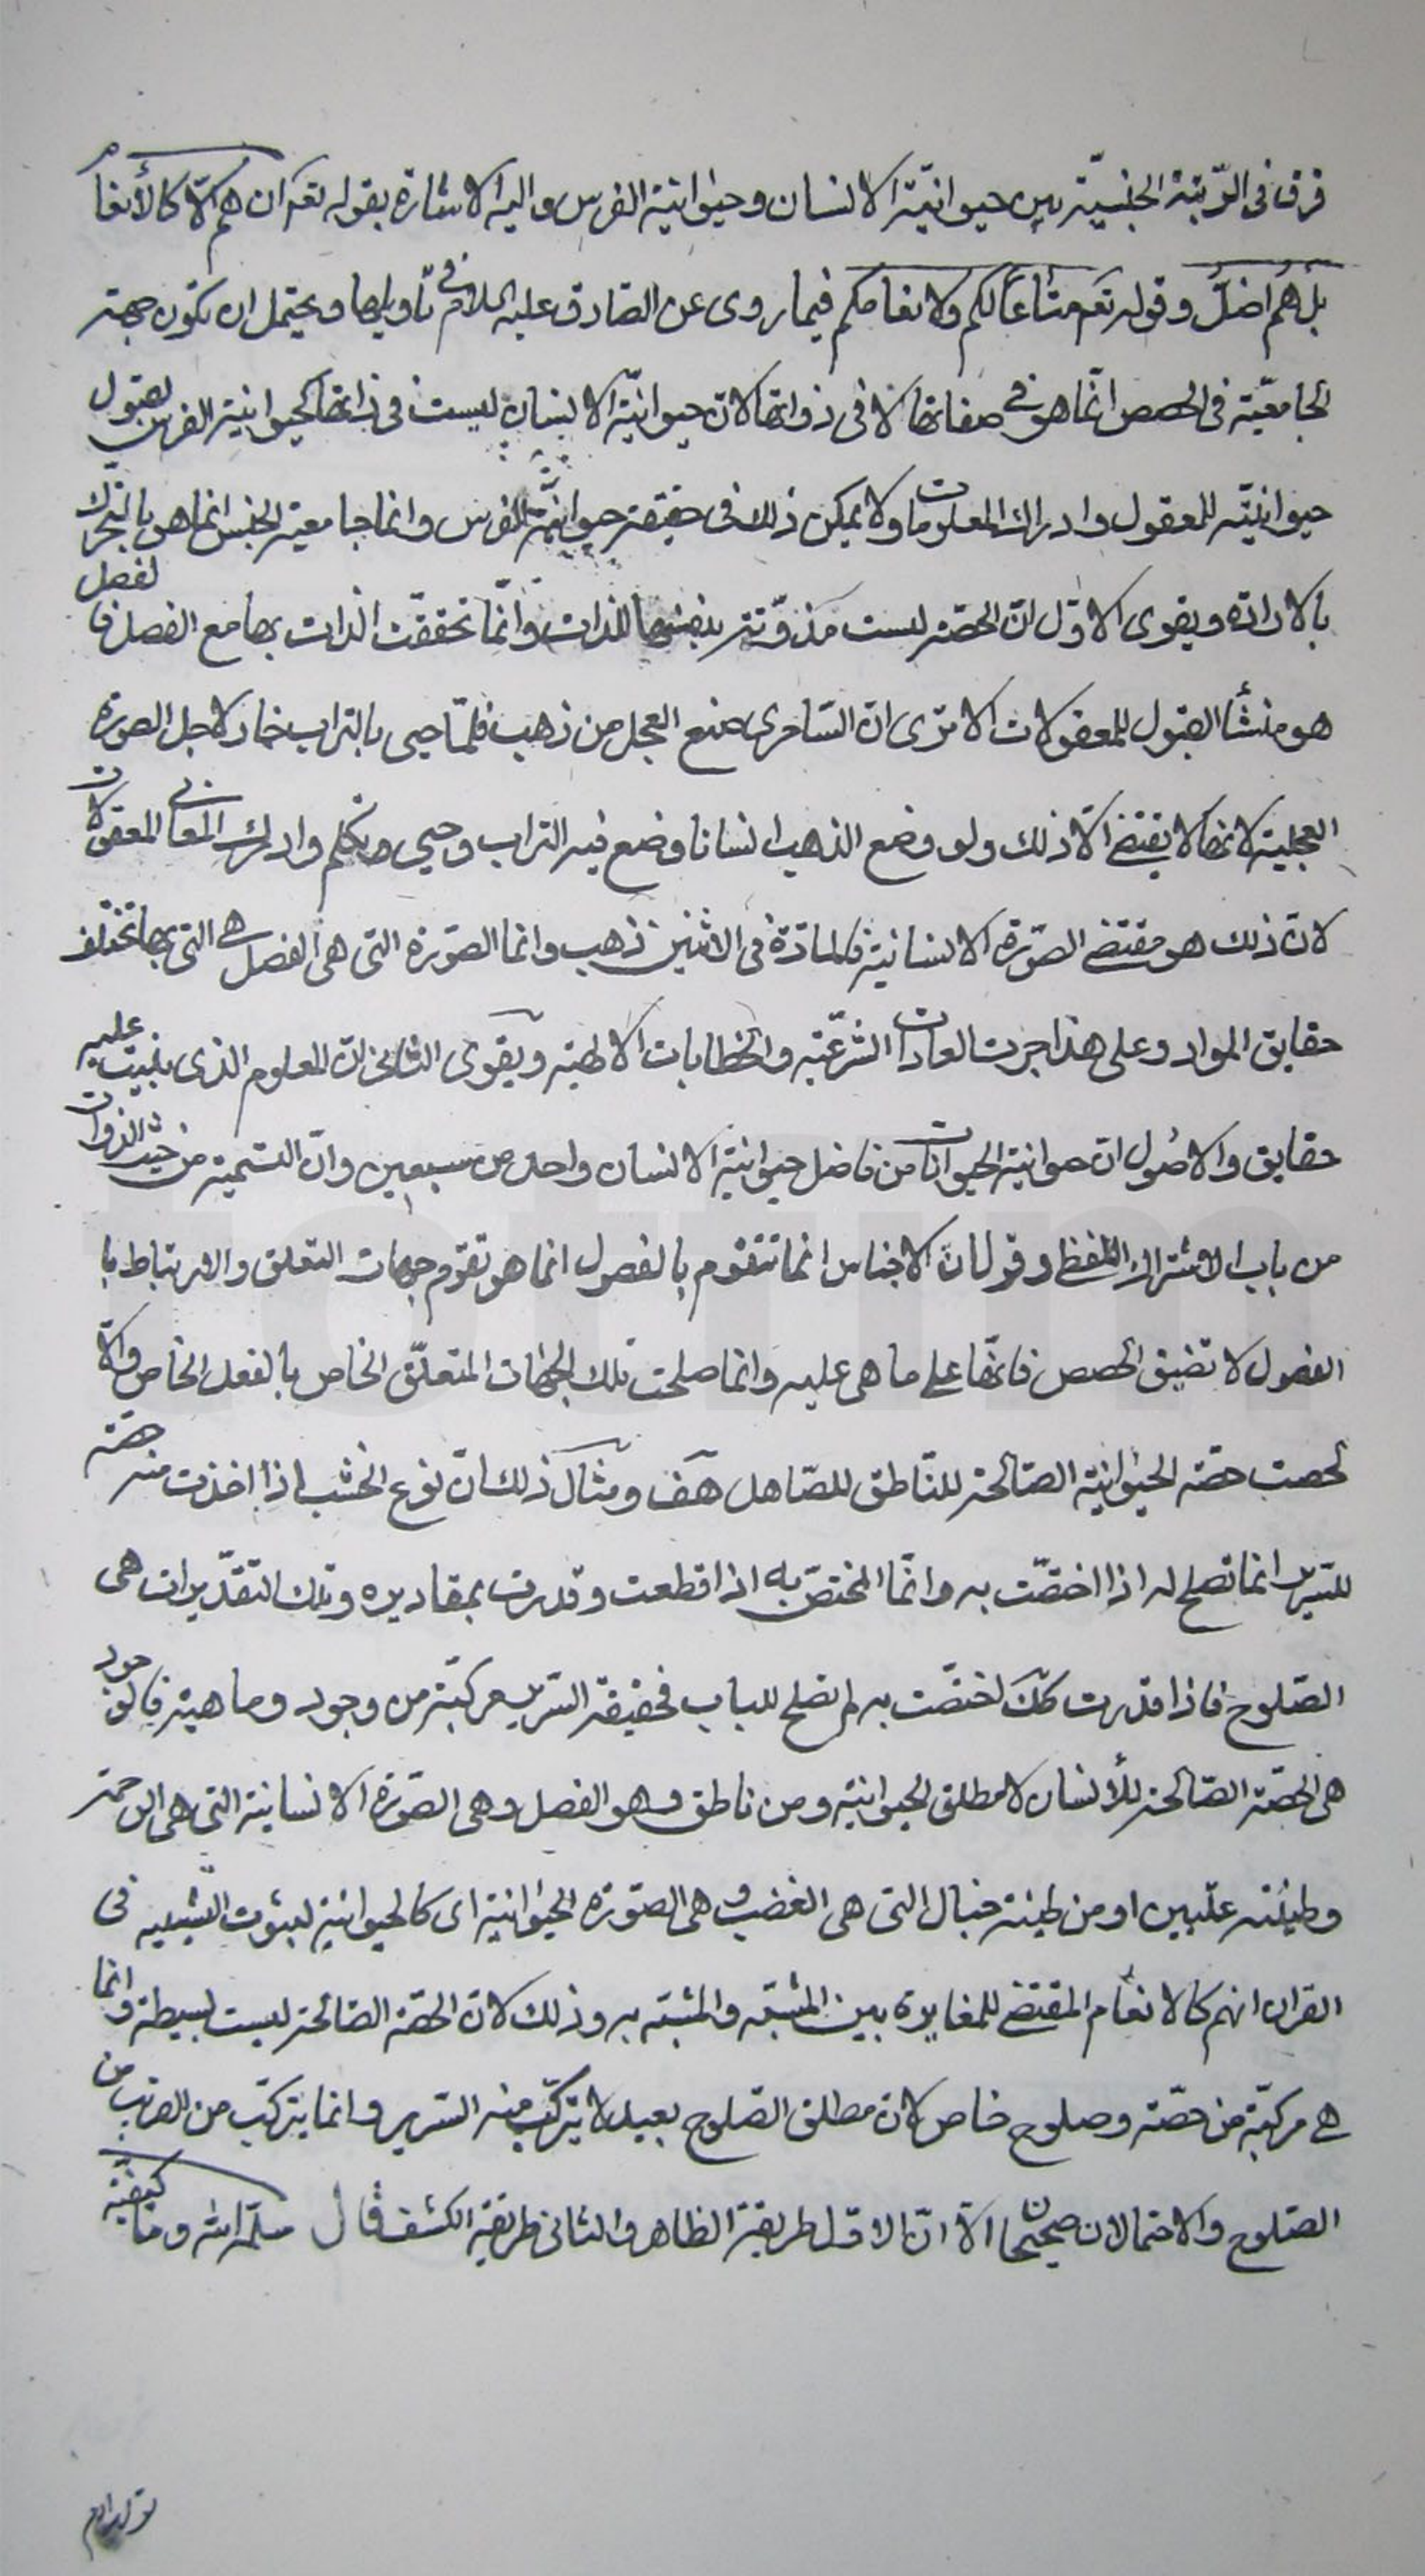 فرق فى الرّتبة الجنسيّة بين حيوانيّة الانسان وحيوانية الفرس واليه الاشارة بقوله تعه ان هم الّا كالأنعام
بل هم اضلّ وقوله تعه متاعًا لكم ولانعامكم فيما روى عن الصّادق عليه السلام فى تأويلها ويحتمل ان تكون جهة
الجامعيّة فى الحصص انّما هو فى صفاتها لا فى ذواتها لانّ حيوانيّة الانسان ليست فى ذاتها كحيوانية الفرس لقبول
حيوانيته للمعقول وادراك المعلومات ولا يمكن ذلك فى حقيقة حيوانيّة الفرس وانما جامعية الجنس انما هو بالتحرّك
بالارادة ويقوى الاوّل انّ الحصّة ليست مذوّتة بنفسها للذات وانّما تحققت الذات بها مع الفصل فالفصل
هو منشأ القبول للمعقولات الا ترى انّ السّامرى صنع العجل من ذهب فلمّا حيى بالتراب خار لاجل الصورة
العجلية لانها لا يقتضى الّا ذلك ولو وضع الذهب انسانا وضع فيه التراب وحيى وتكلم وادرك المعانى المعقولات
لانّ ذلك هو مقتضى الصّورة الانسانية فالمادّة فى الاثنين ذهب وانما الصّورة التى هى الفصل هى التى بها تختلف
حقايق المواد وعلى هذا جرت العادات الشرعيّة والخطابات الالهية ويقوى الثانى انّ المعلوم الذى بنيت عليه
حقايق والاصُول انّ حيوانية الحيوانات من فاضل حيوانية الانسان واحد من سبعين وانّ التسمية من حيث الذوات
من باب الاشتراك اللفظى وقولنا انّ الاجناس انما تتقوم بالفصول انما هو تقوّم جهات التعلق والارتباط با
الفصول لا تضيق الحصص فانّها على ما هى عليه وانما صلحت تلك الجهات المتعلّق الخاص بالفعل الخاص والّا
لحصت حصّة الحيوانية الصّالحة للنّاطق للصّاهل هف ومثال ذلك انّ نوع الخشب اذا اخذت منه حصّة
للسّرير انما تصلح له اذا اختصّت به وانّما المختصّ به اذا قطعت وقدرت بمقاديره وتلك التقديرات هى
الصّلوح فاذا قدّرت كك اختصّت به لم تصلح للباب فحقيقة السّرير مركبّة من وجود وماهية فالوجود
هى الحصّة الصّالحة للأنسان لا مطلق الحيوانية ومن ناطق وهو الفصل وهى الصّورة الانسانية التى هى الرحمة
وطينة علّيين او من طينة خبال التى هى الغضب وهى الصّورة الحيوانية اى كالحيوانية لثبوت التشبيه فى
القران انهم كالانعام المقتضى للمغايرة بين المشبّه والمشبّه به وذلك لانّ الحصّة الصّالحة ليست بسيطة وانما
هى مركبّة من حصّة وصلوح خاص لانّ مطلق الصّلوح بعيد لا يتركّب منه السّرير وانما يتركّب من القريب من
الصّلوح والاحتمالان صحيحان الّا انّ الاوّل طريقة الظاهر والثانى طريقة الكشف قال سلّمه الله وما كيفيّة